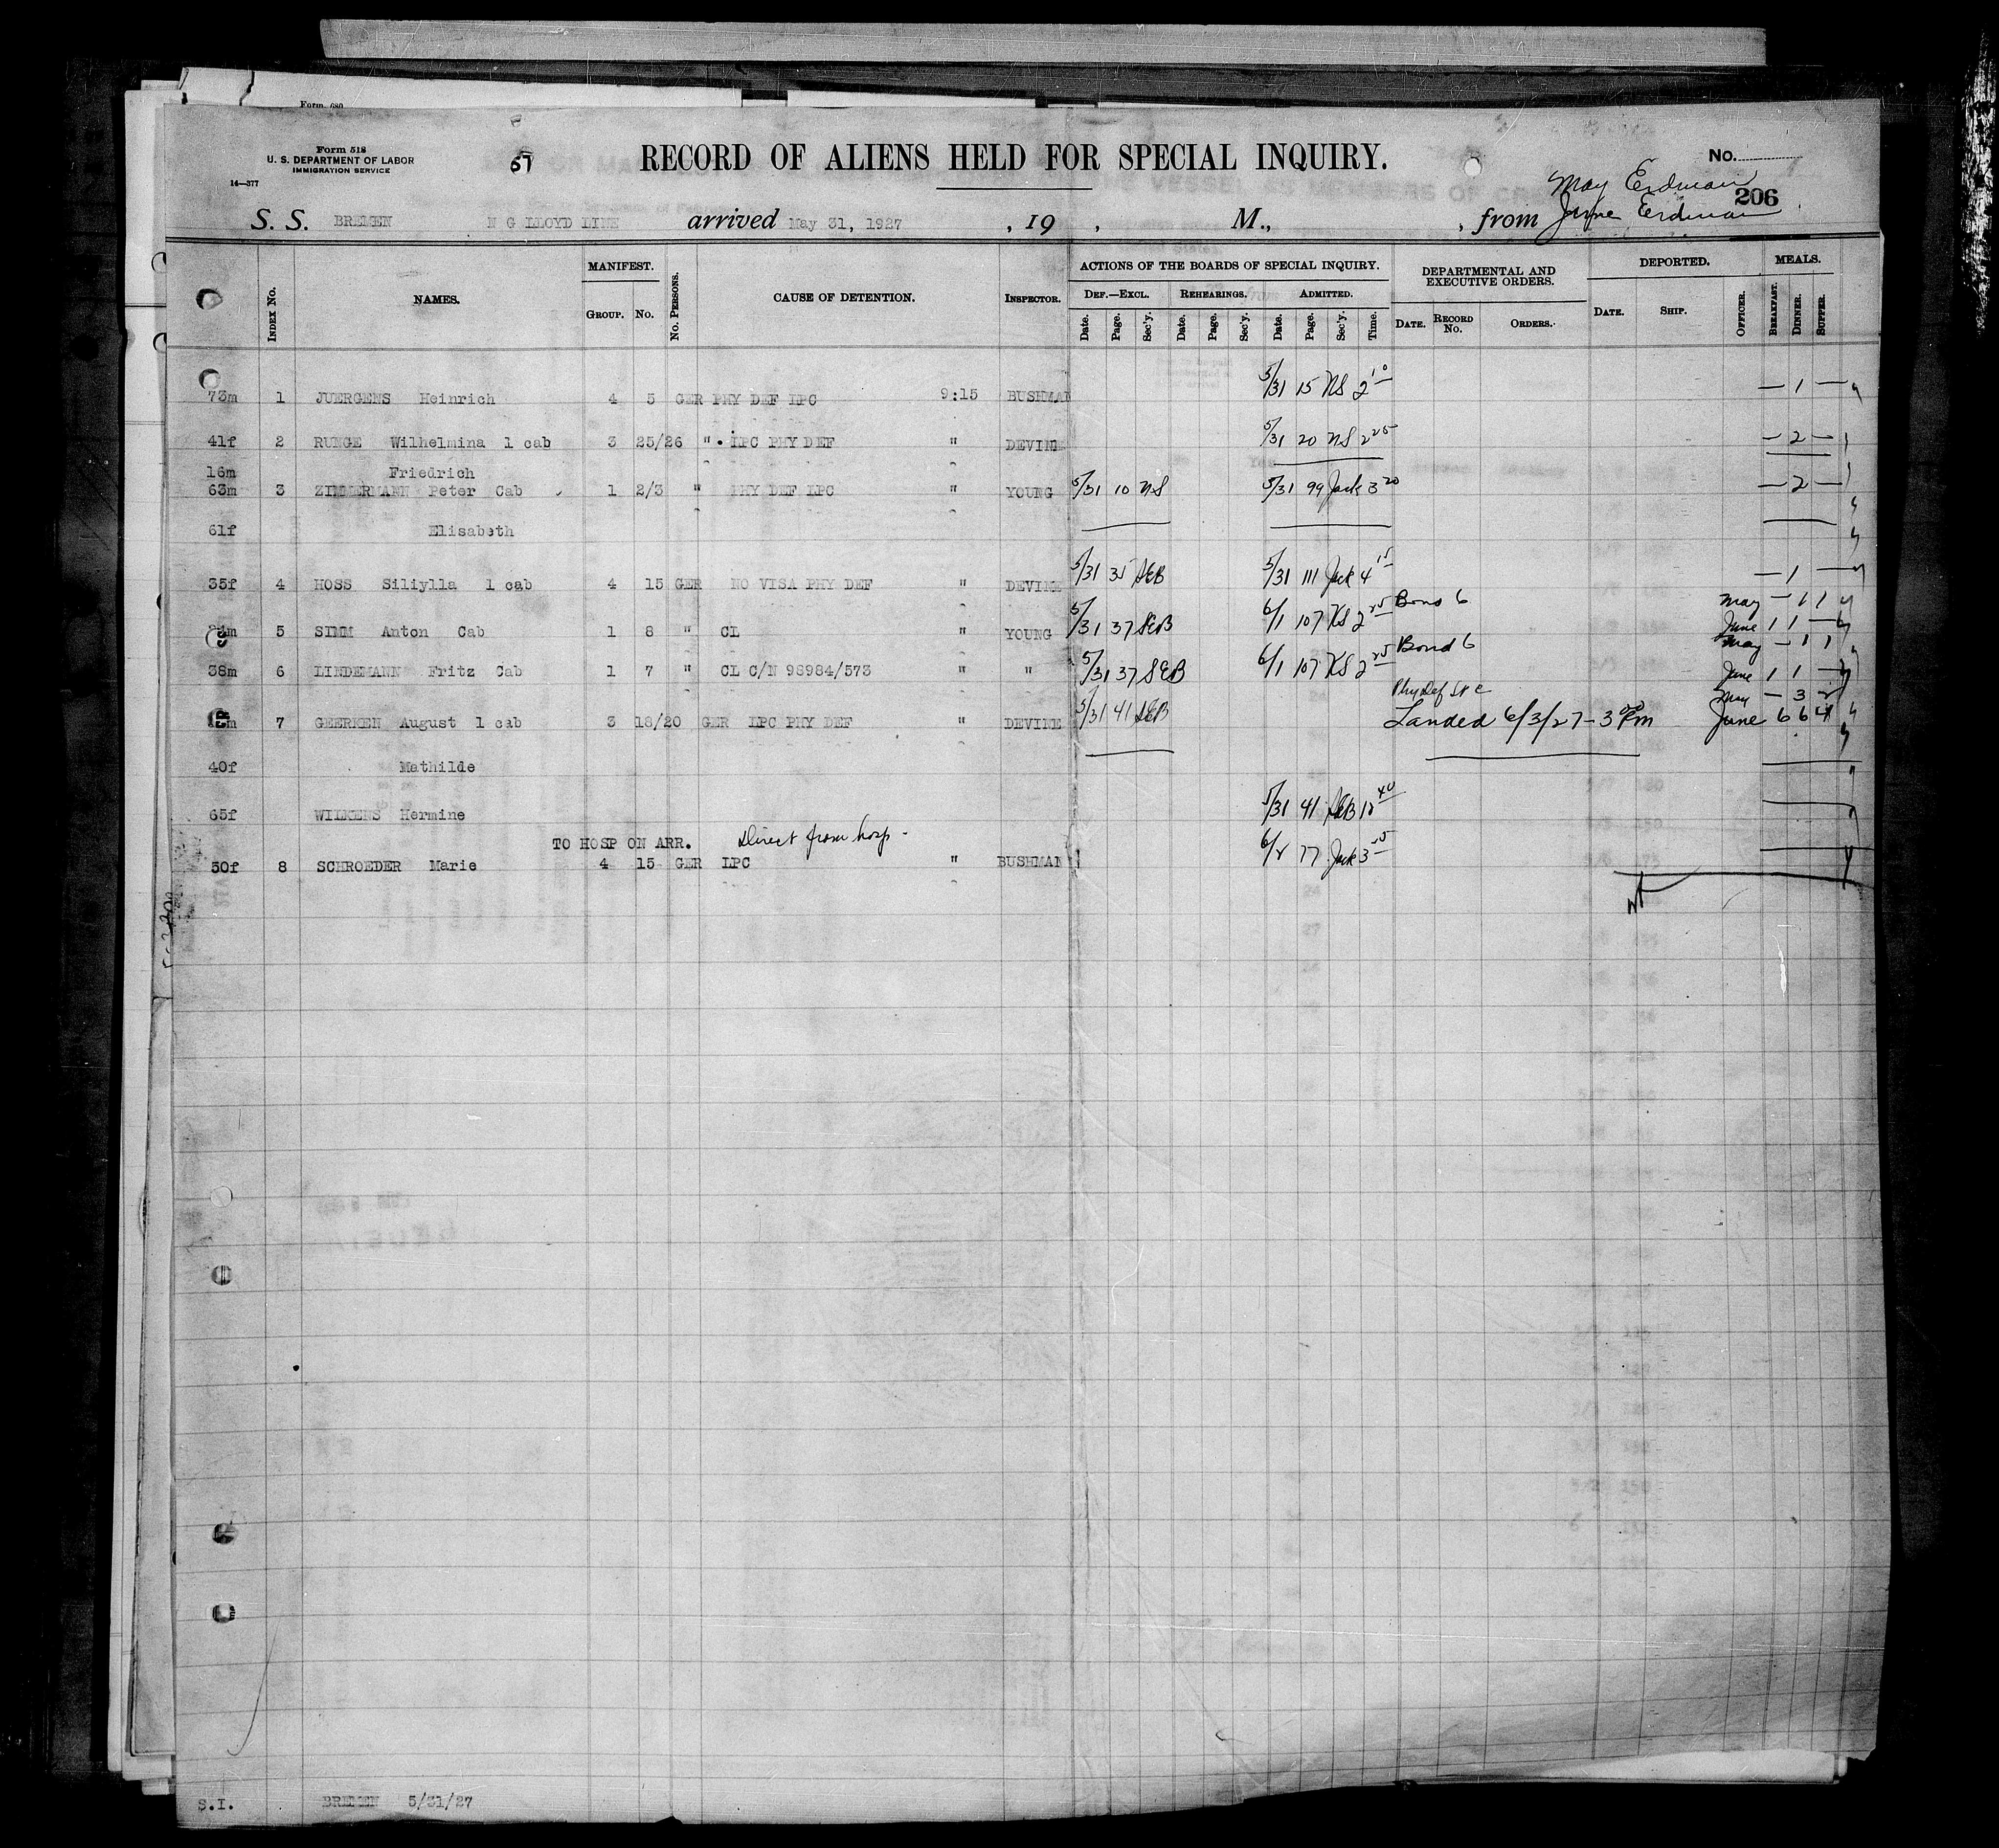 Form 680
Form 518
U. S. DEPARTMENT OF LABOR
IMMIGRATION SERVICE
14—377
57
RECORD OF ALIENS HELD FOR SPECIAL INQUIRY.
No.
May Erdman
206
S. S. BREMEN N G LLOYD LINE arrived May 31, 1927, 19 , M., , from June Erdman
INDEX No.
NAMES.
MANIFEST.
GROUP. No.
No. PERSONS.
CAUSE OF DETENTION.
INSPECTOR.
ACTIONS OF THE BOARDS OF SPECIAL INQUIRY.
DEF.—EXCL. REHEARINGS. ADMITTED.
Date. Page. Sec'y. Date. Page. Sec'y. Date. Page. Sec'y. Time.
DEPARTMENTAL AND EXECUTIVE ORDERS.
DATE. RECORD No. ORDERS.
DEPORTED.
DATE. SHIP. OFFICER.
MEALS.
BREAKFAST. DINNER. SUPPER.
73m 1 JUERGENS Heinrich 4 5 GER PHY DEF LPC 9:15 BUSHMAN 5/31 15 NS 2 10 — 1 —
41f 2 RUNGE Wilhelmina 1 cab 3 25/26 " LPC PHY DEF " DEVINE 5/31 20 NS 2 25 — 2 —
16m Friedrich
63m 3 ZIMMERMANN Peter Cab 1 2/3 " PHY DEF LPC " YOUNG 5/31 10 NS 5/31 99 Jack 3 20 — 2 —
61f Elisabeth
35f 4 HOSS Siliylla 1 cab 4 15 GER NO VISA PHY DEF " DEVINE 5/31 35 SEB 5/31 111 Jack 4 15 — 1 —
5 SIMM Anton Cab 1 8 " CL " YOUNG 5/31 37 SEB 6/1 107 KS 2 25 Bond 6 May — 1 1
June 1 1 —
38m 6 LINDEMANN Fritz Cab 1 7 " CL C/N 98984/573 " " 5/31 37 SEB 6/1 107 KS 2 25 Bond 6 May — 1 1
June 1 1 —
7 GEERKEN August 1 cab 3 18/20 GER LPC PHY DEF " DEVINE 5/31 41 SEB Phy Def May — 3 2
Landed 6/3/27 - 3 PM June 6 6 4
40f Mathilde
65f WILKENS Hermine 5/31 41 SEB 12 40
TO HOSP ON ARR. Direct from hosp -
50f 8 SCHROEDER Marie 4 15 GER LPC " BUSHMAN 6/2 77 Jack 3
S.I. BREMEN 5/31/27